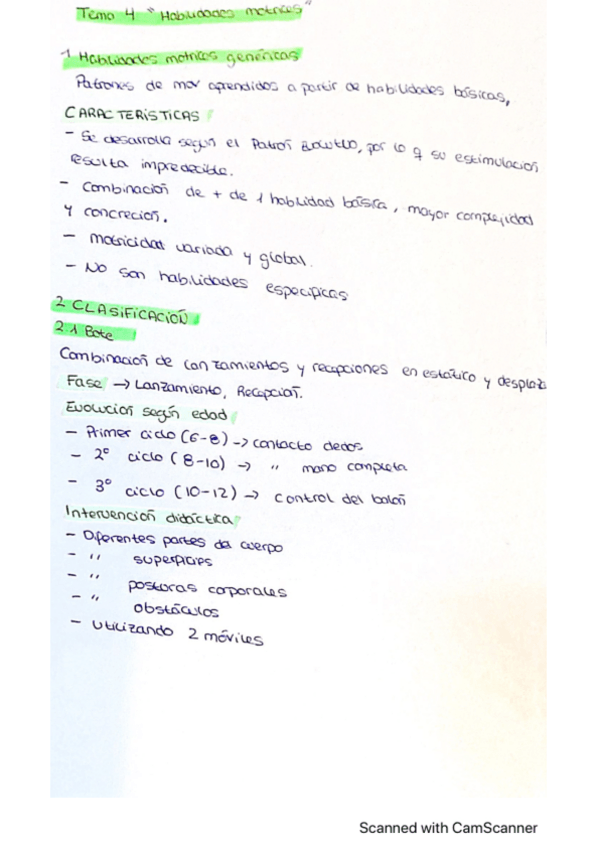 Tema 4 "Habilidades motrices"
1 Habilidades motrices genéricas
Patrones de mov aprendidos a partir de habilidades básicas,
CARACTERÍSTICAS
- Se desarrolla según el Patrón, por lo q su estimulación
resulta impredecible.
- Combinación de + de 1 habilidad básica, mayor complejidad
y concreción.
- Motricidad variada y global.
- No son habilidades específicas
2 CLASIFICACIÓN
2.1 Bote
Combinación de lanzamientos y recepciones en estático y desplaz
Fase → Lanzamiento, Recepción.
Evolución según edad
- Primer ciclo (6-8) → contacto dedos
- 2º ciclo (8-10) → " mano completa
- 3º ciclo (10-12) → control del balón
Intervención didáctica
- Diferentes partes del cuerpo
- " superficies
- " posturas corporales
- " obstáculos
- Utilizando 2 móviles
Scanned with CamScanner